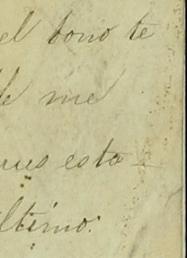 el tono te
de me
ues esta
ltimo.